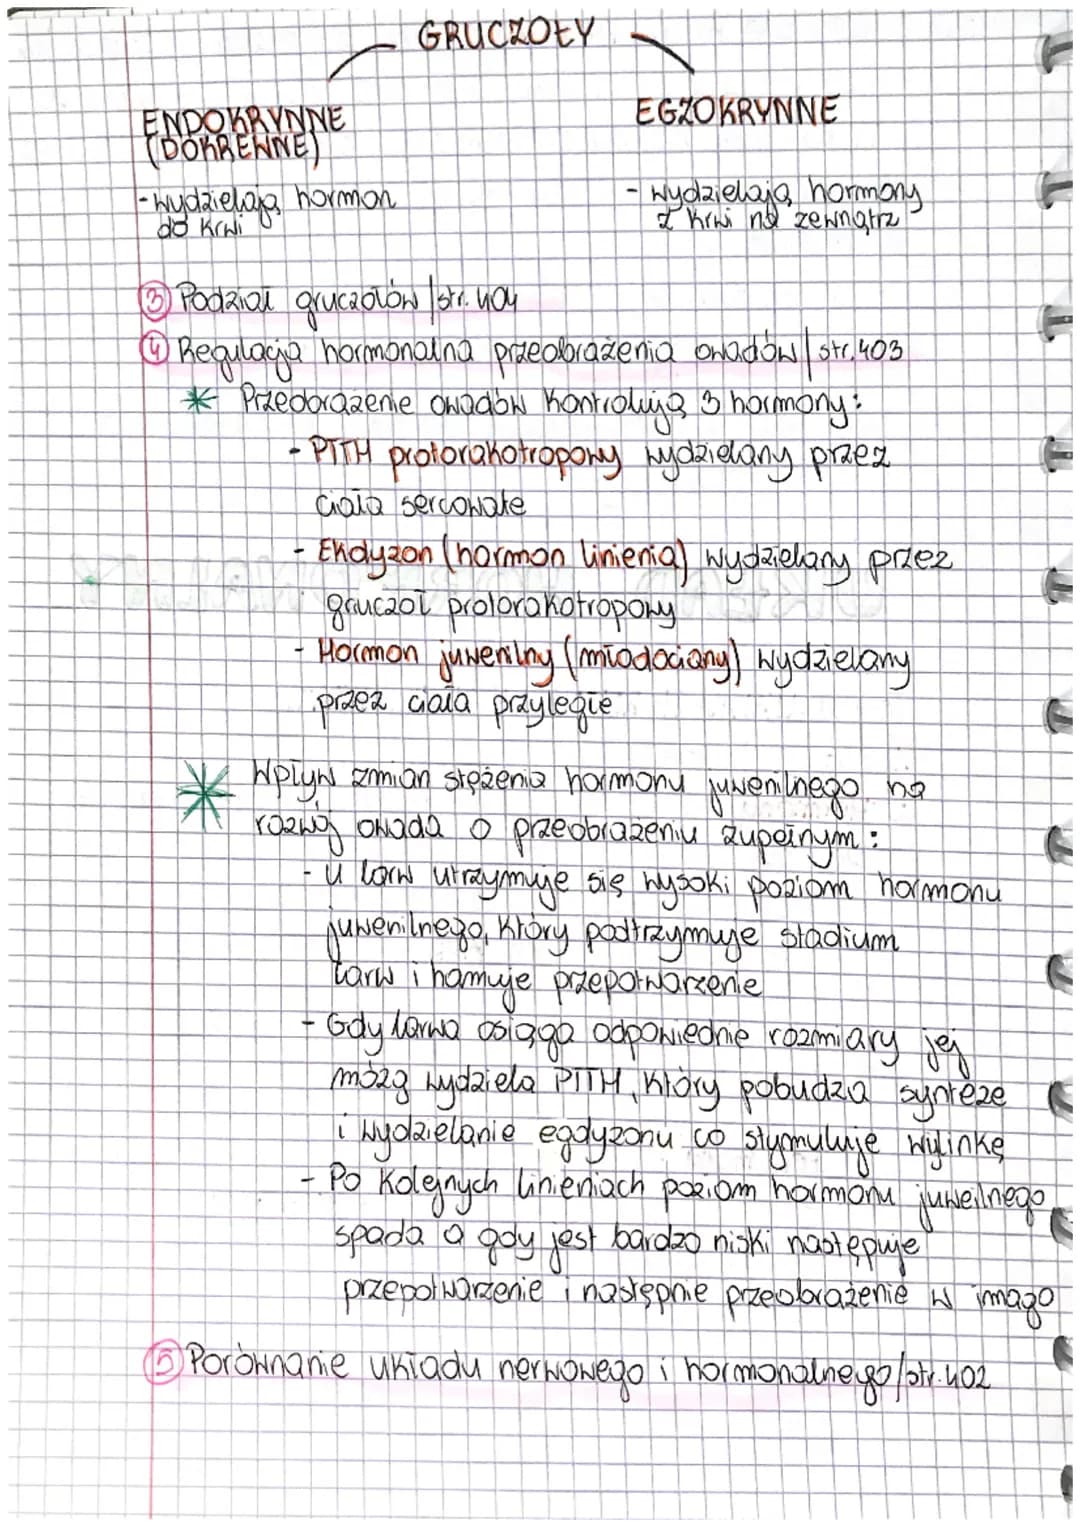 GRUCZOŁY
ENDOKRYNNE
(DOKREWNE)
EGZOKRYNNE
-wydzielają hormon
do krwi
- wydzielają hormony
z krwi na zewnątrz
③ Podział gruczołów /str. 404
④ Regulacja hormonalna przeobrażenia owadów / str. 403
* Przeobrażenie owadów kontrolują 3 hormony:
- PTTH protorakotropowy wydzielany przez
ciała sercowate
- Ekdyzon (hormon linienia) wydzielany przez
gruczoł protorakotropowy
- Hormon juwenilny (młodociany) wydzielany
przez ciała przyległe
* Wpływ zmian stężenia hormonu juwenilnego na
rozwój owada o przeobrażeniu zupełnym:
- U larw utrzymuje się wysoki poziom hormonu
juwenilnego, który podtrzymuje stadium
larw i hamuje przepotwarzenie
- Gdy larwa osiąga odpowiednie rozmiary jej
mózg wydziela PTTH, który pobudza syntezę
i wydzielanie egdyzonu co stymuluje wylinkę
- Po kolejnych linieniach poziom hormonu juweilnego
spada a gdy jest bardzo niski następuje
przepotwarzenie i następnie przeobrażenie w imago
⑤ Porównanie układu nerwowego i hormonalnego /str. 402